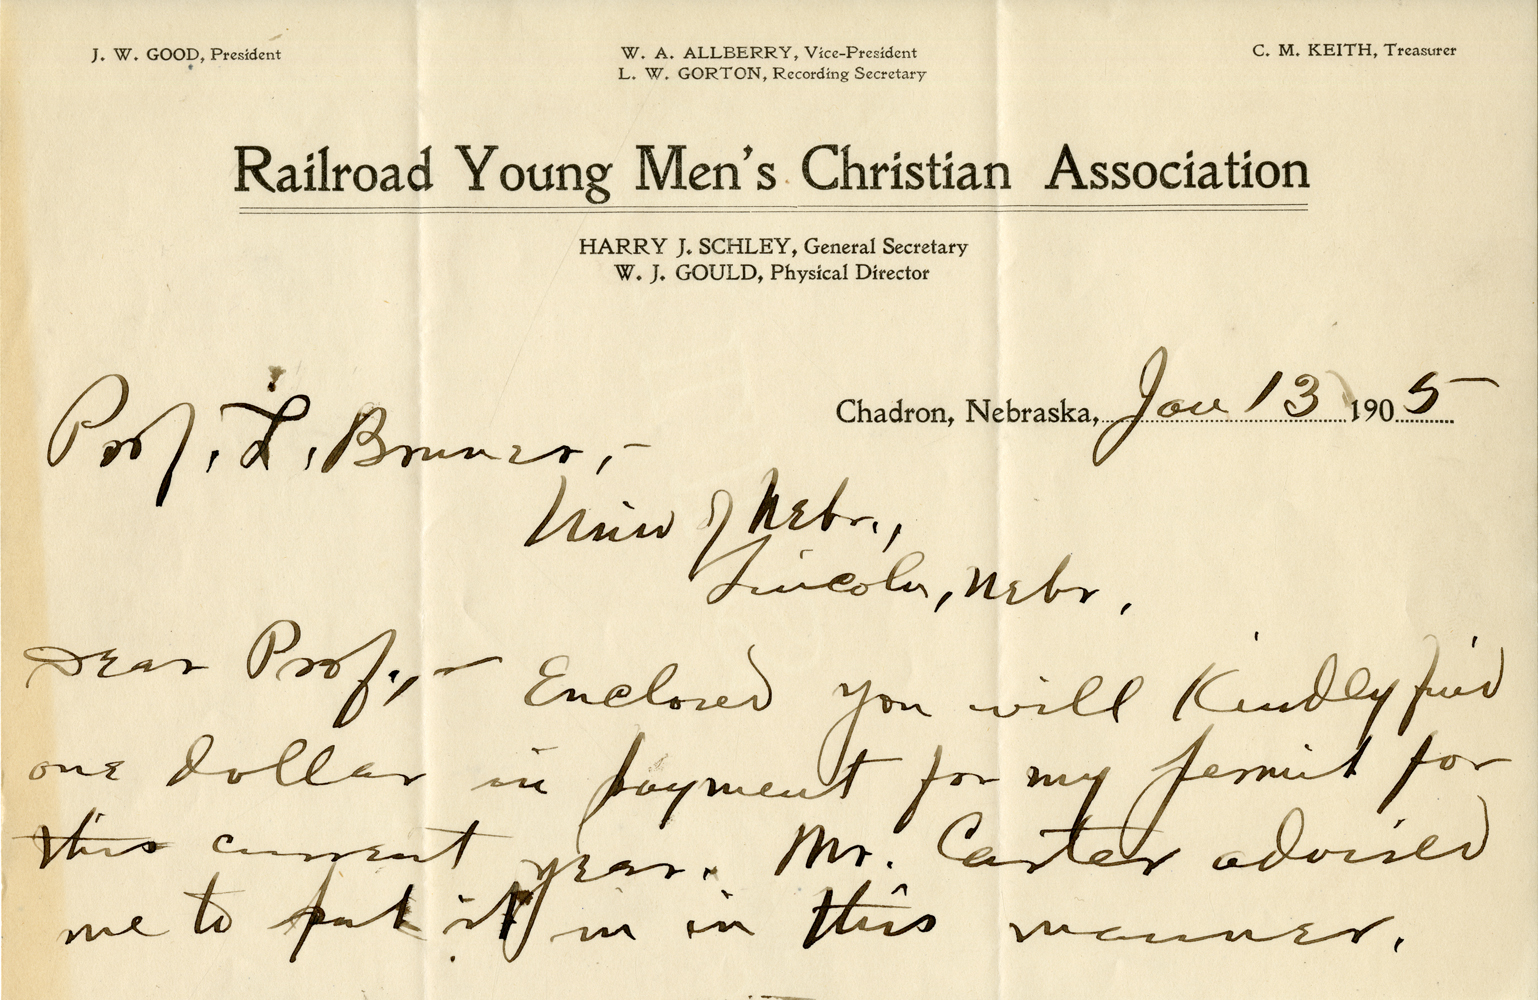 J. W. GOOD, President
W. A. ALLBERRY, Vice-President
C. M. KEITH, Treasurer
L. W. GORTON, Recording Secretary
Railroad Young Men's Christian Association
HARRY J. SCHLEY, General Secretary
W. J. GOULD, Physical Director
Chadron, Nebraska, Jan 13 1905
Prof. L. Bruner,-
Univ of Nebr.,
Lincoln, Nebr.
Dear Prof.,- Enclosed you will kindly find
one dollar in payment for my permit for
this current year. Mr. Carter advised
me to put it in in this manner.